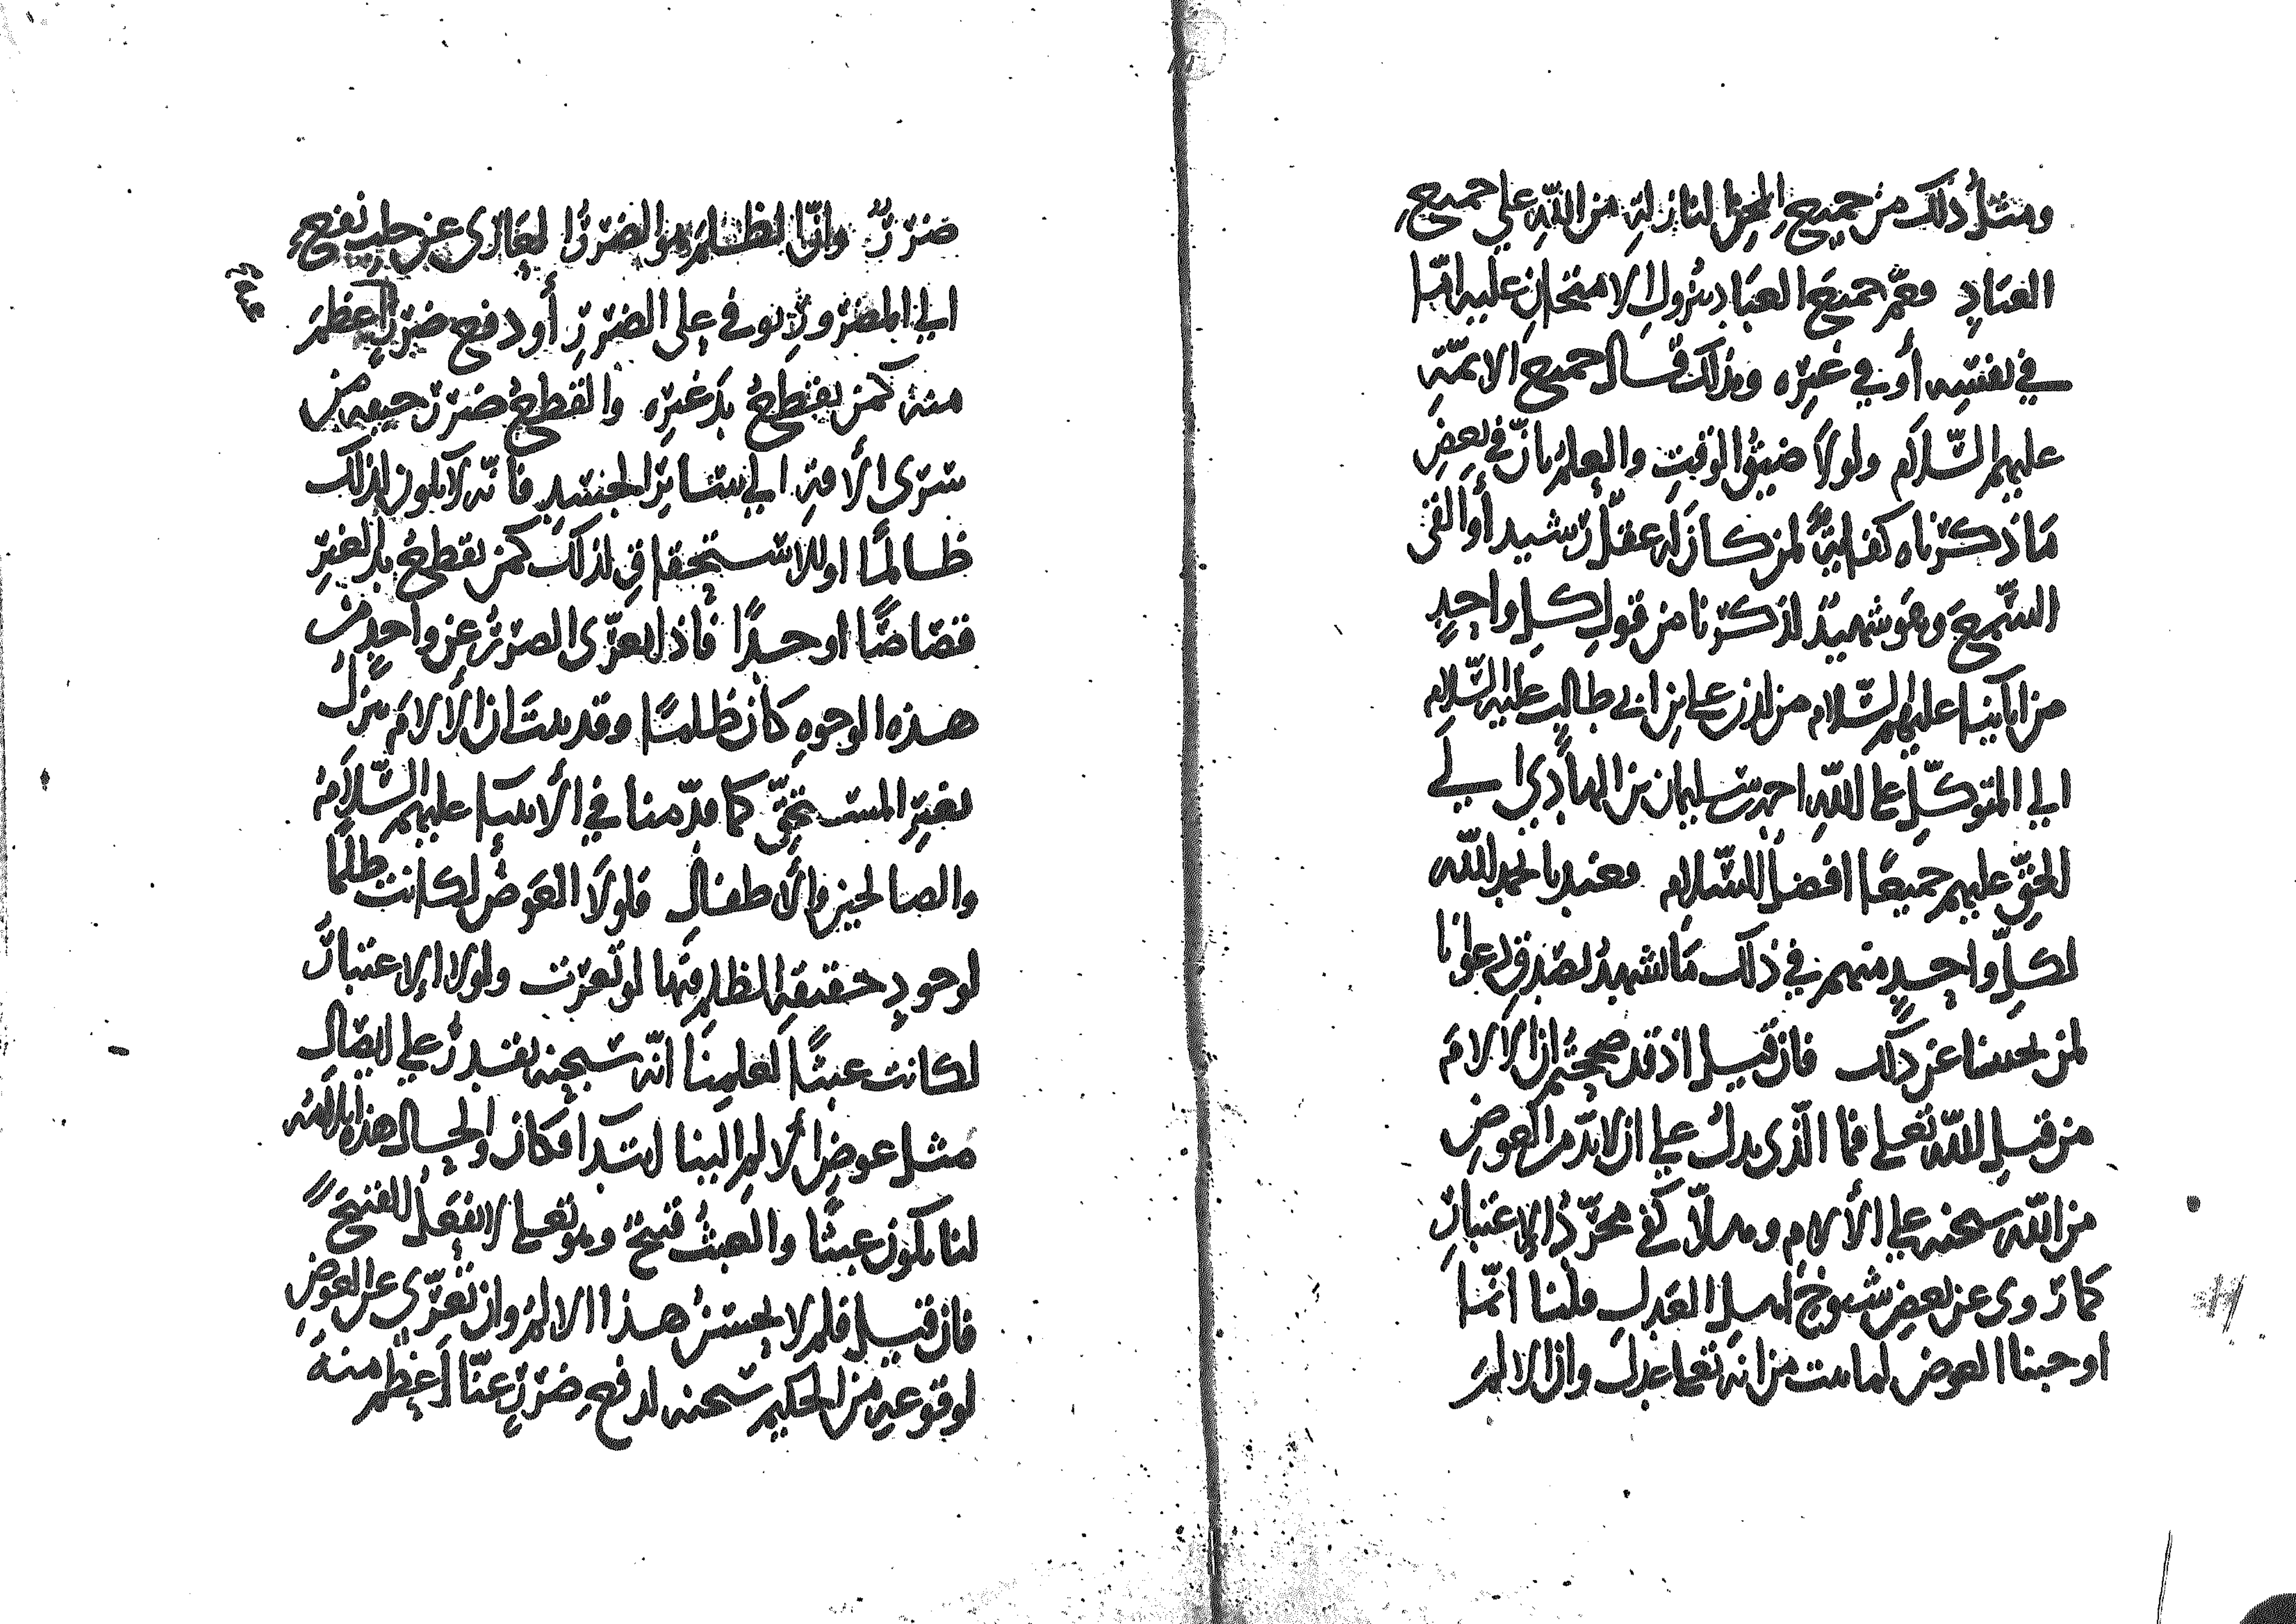 ومثل ذلك من جميع المحن النازلة من الله على جميع
العباد فعمّ جميع العباد بنزول الامتحان عليه امّا
في نفسه أو في غيره وبذلك قال جميع الائمّة
عليهم السّلام ولولا ضيق الوقت والعلم بانّ في بعض
مَا ذكرناه كفايةً لمن كان له عقل رشيد أو القى
السّمع وهو شهيد لذكرنا من قول كل واحدٍ
من ابائنا عليهم السّلام من لدن علي بن ابي طالب عليه السّلام
الى المتوكّل على الله احمد بن سليمان بن الهادي الى
الحقّ عليهم جميعًا افضل السّلام فعندنا بحمد الله
لكلّ واحدٍ منهم في ذلك مَا يشهد بصدق دعوانا
لمن بحثنا عن ذلك فان قيل اذ قد صححتم ان الالام
من قبل الله تعلى فما الّذي يدل على ان لا بدّ من العوض
من الله سبحنه على الألام وهلاّ كفى مجرّد الاعتبار
كما روى عن بعض شيوخ اهل العدل قلنا انّما
اوجبنا العوض لما ثبت من انه تعلى عدل وان الالم
ضررٌ وانّما الظلم هو الضرر العاري عن جلب نفع
الى المضرور يوفي على الضرر أو دفع ضررٍ اعظم
منه كمن يقطع يد غيره والقطع ضرر خيفة من
سرى الأفة الى سائر الجسد فانّه لا يكون بذلك
ظالمًا او للاستحقاق لذلك كمن يقطع يد الغير
قصاصًا او حدًا فاذا تعرّى الضرر عن واحدٍ من
هذه الوجوه كان ظلمًا وقد ثبت ان الألام تنزل
بغير المستحقّ كما قدّمنا في الأنبيا عليهم السّلام
والصالحين والأطفال فلولا العوض لكانت ظلمًا
لوجود حقيقة الظلم فيها لو تعرت ولولا الاعتبار
لكانت عبثًا لعلمنا انّه سبحنه يقدر على ايصال
مثل عوض الألم الينا ابتدا فكان والحال هذه ايلامه
لنا يكون عبثًا والعبث قبيحٌ وهو تعلى لا يفعل القبيح
فان قيل فلم لا يحسن هذا الالم وان تعرّى عن العوض
لوقوعه من الحكيم سبحنه لدفع ضررٍ عنّا اعظم منه